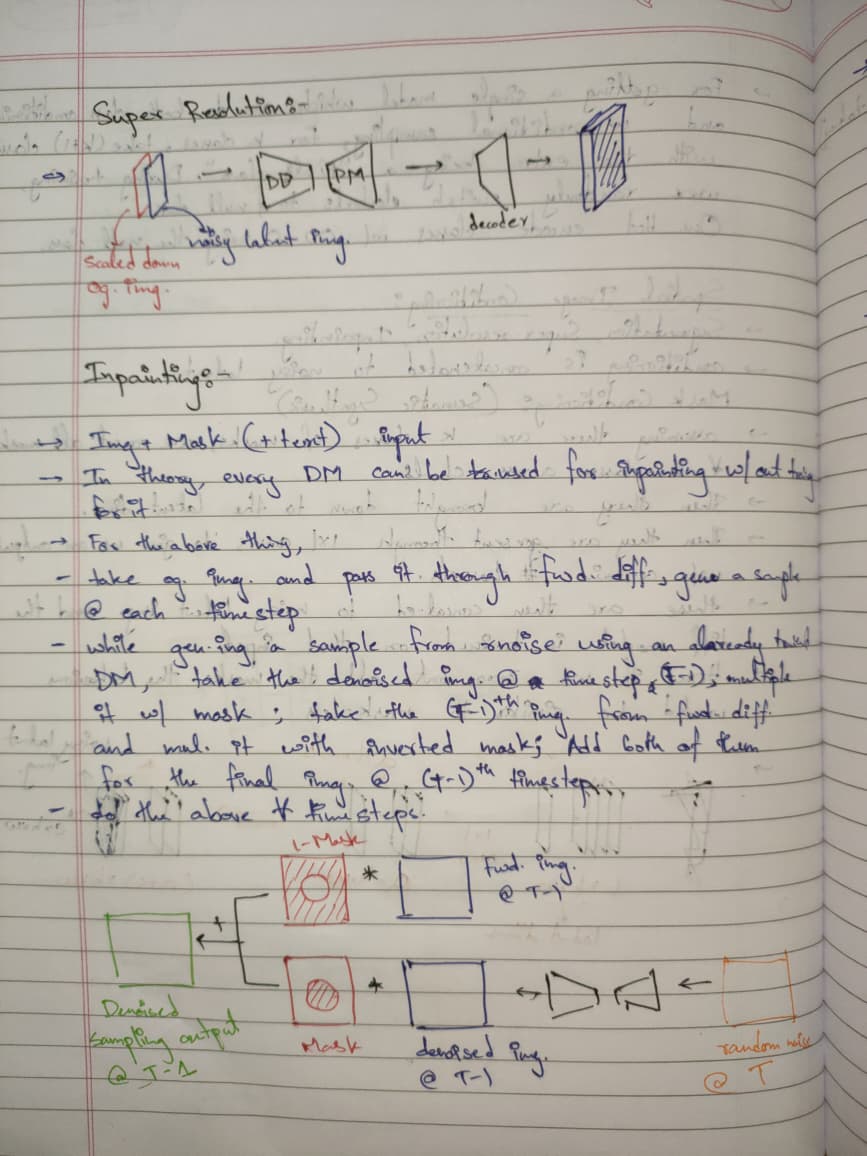 Super Resolution:-
DD PM
decoder
noisy latent img.
scaled down
og. img.
Inpainting:-
→ Img + Mask (+ text) input
→ In theory, every DM can be used for inpainting w/out
for it
→ For the above thing,
- take og. img. and pass it through fwd. diff, a sample
@ each timestep
- while gen.ing a sample from noise using an already
DM, take the denoised img. @ timestep (T-1); multiple
it w/ mask ; take the (T-1)th img. from fwd diff
and mul. it with inverted mask; Add both of them
for the final img. @ (T-1)th timestep.
- do the above ∀ timesteps.
1-Mask
* fwd. img.
@ T-1
+
*
Denoised
sampling output
@ T-1
Mask
denoised img.
@ T-1
random noise
@ T